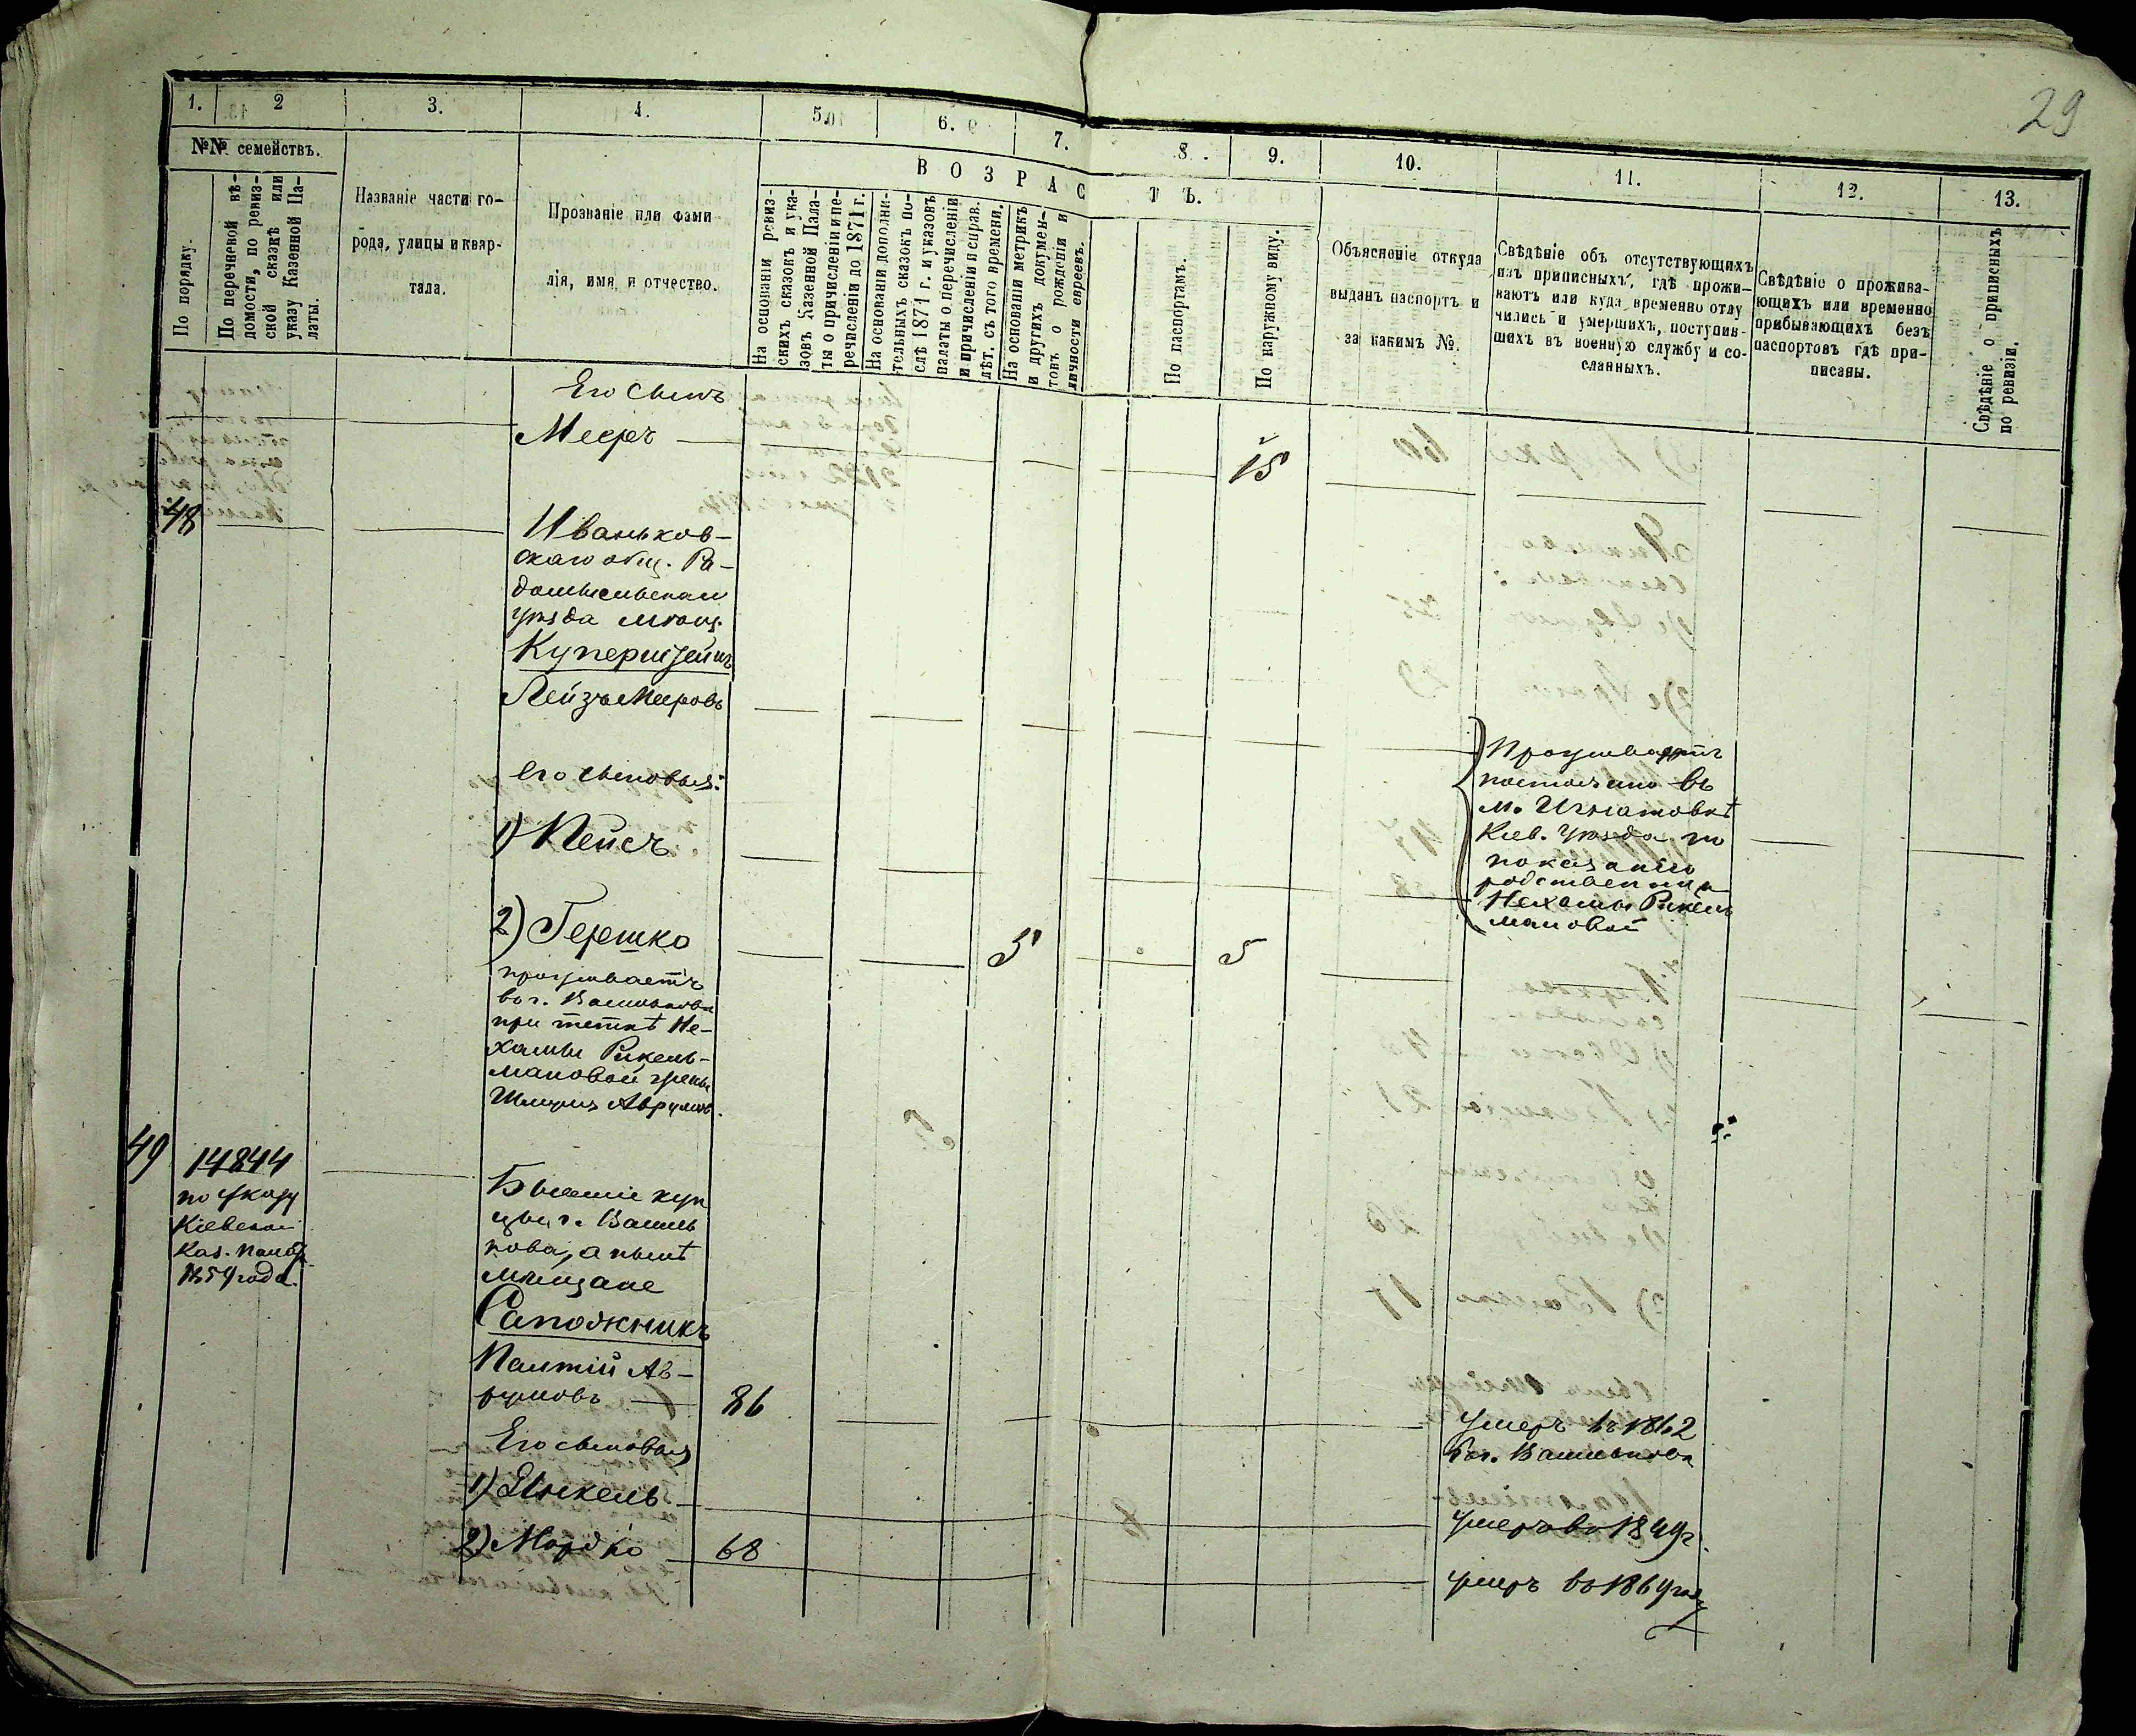 29
1. 2 3. 4. 5. 6. 7. 8. 9. 10. 11. 12. 13.
№№ семействъ.
По порядку.
По перечневой вѣ-
домости, по ревиз-
ской сказкѣ или
указу Казенной Па-
латы.
Названіе части го-
рода, улицы и квар-
тала.
Прозваніе или фами-
лія, имя и отчество.
ВОЗРАСТЪ.
На основаніи ревиз-
скихъ сказокъ и ука-
зовъ Казенной Пала-
ты о причисленіи и пе-
речисленіи до 1871 г.
На основаніи дополни-
тельныхъ сказокъ по-
слѣ 1871 г. и указовъ
палаты о перечисленіи
и причисленіи и справ.
лѣт. съ того времени.
На основаніи метрикъ
и другихъ докумен-
товъ о рожденіи и
личности евреевъ.
По паспортамъ.
По наружному виду.
Объясненіе откуда
выданъ паспортъ и
за какимъ №.
Свѣдѣніе объ отсутствующихъ
изъ приписныхъ, гдѣ прожи-
ваютъ или куда временно отлу
чились и умершихъ, поступив-
шихъ въ военную службу и со-
сланныхъ.
Свѣдѣніе о прожива-
ющихъ или временно
прибывающихъ безъ
паспортовъ гдѣ при-
писаны.
Свѣдѣніе о приписныхъ
по ревизіи.
Его сынъ
Мееръ 15
48
Иваньков-
скаго общ. Ра-
домысльскаго
уѣзда мѣщ.
Куперштейнъ
Лейзъ Меѣровъ
Его сыновья:
1) Пейсъ
Проживаетъ
постоянно въ
м. Игнатовкѣ
Кіев. уѣзда по
показанію
родственника
Нехамы Рикель
мановой
2) Гершко 5 5
проживаетъ
въ г. Васильковѣ
при теткѣ Не-
хамы Рикель-
мановой жены
Авруман.
49 14844
по указу
Кіевской
Каз. Палаты
1854 года.
Бывшіе куп
цы г. Василь
кова, а нынѣ
мѣщане
Сапожникъ
Палтій Ав-
румовъ 86
Умеръ въ 1862
въ г. Васильковѣ
Его сыновья
1) Янкель Умеръ въ 1849 г.
2) Мордко 68 умеръ въ 1869 году